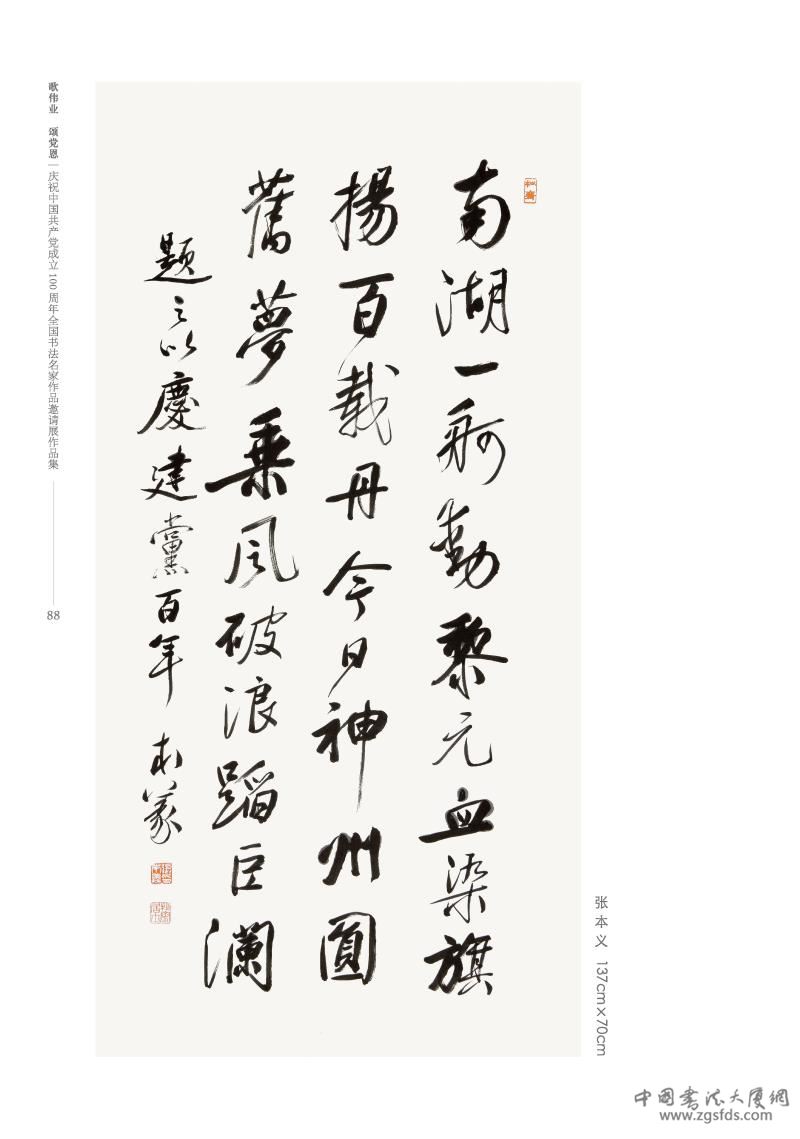 南湖一舸動黎元血染旗
揚百載丹今日神州圓
舊夢乘風破浪蹈巨瀾
題之以慶建黨百年 本義
歌伟业 颂党恩｜庆祝中国共产党成立100周年全国书法名家作品邀请展作品集
88
张本义 137cm×70cm
中国書法大厦網
www.zgsfds.com